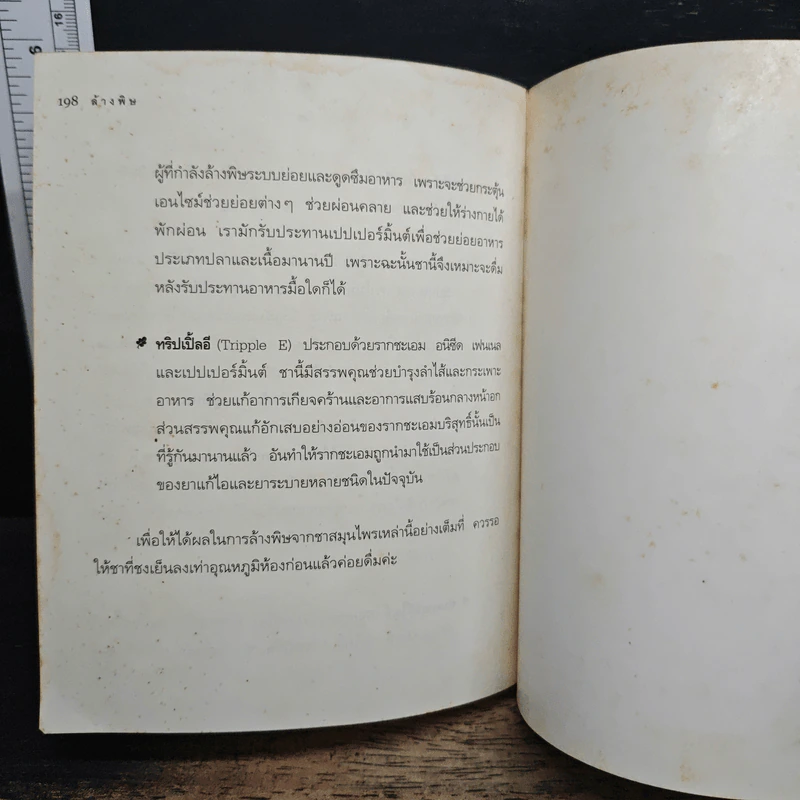 16
6
198 ล้างพิษ
ผู้ที่กำลังล้างพิษระบบย่อยและดูดซึมอาหาร เพราะจะช่วยกระตุ้น
เอนไซม์ช่วยย่อยต่างๆ ช่วยผ่อนคลาย และช่วยให้ร่างกายได้
พักผ่อน เรามักรับประทานเปปเปอร์มิ้นต์เพื่อช่วยย่อยอาหาร
ประเภทปลาและเนื้อมานานปี เพราะฉะนั้นชานี้จึงเหมาะจะดื่ม
หลังรับประทานอาหารมื้อใดก็ได้
ทริปเปิ้ลอี (Tripple E) ประกอบด้วยรากชะเอม อนิซีด เฟนเนล
และเปปเปอร์มิ้นต์ ชานี้มีสรรพคุณช่วยบำรุงลำไส้และกระเพาะ
อาหาร ช่วยแก้อาการเกียจคร้านและอาการแสบร้อนกลางหน้าอก
ส่วนสรรพคุณแก้อักเสบอย่างอ่อนของรากชะเอมบริสุทธิ์นั้นเป็น
ที่รู้กันมานานแล้ว อันทำให้รากชะเอมถูกนำมาใช้เป็นส่วนประกอบ
ของยาแก้ไอและยาระบายหลายชนิดในปัจจุบัน
เพื่อให้ได้ผลในการล้างพิษจากชาสมุนไพรเหล่านี้อย่างเต็มที่ ควรรอ
ให้ชาที่ชงเย็นลงเท่าอุณหภูมิห้องก่อนแล้วค่อยดื่มค่ะ